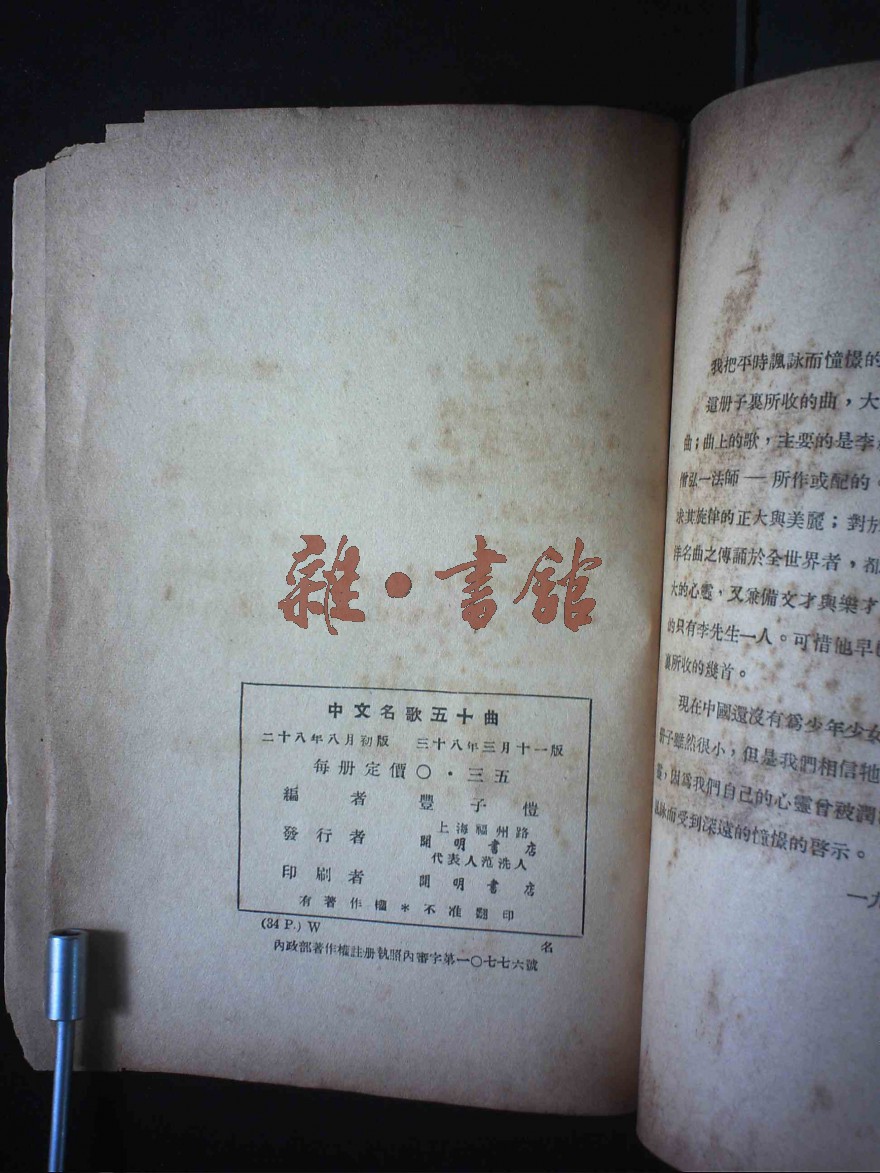 雜·書館
中文名歌五十曲
二十八年八月初版 三十八年三月十一版
每册定價〇·三五
編者 豐子愷
發行者 上海福州路
開明書店
代表人范洗人
印刷者 開明書店
有著作權＊不准翻印
(34 P.) W 名
內政部著作權註册執照內審字第一〇七七六號
我把平時諷詠而憧憬的
這册子裏所收的曲，大
曲；曲上的歌，主要的是李
僧弘一法師——所作或配的
求其旋律的正大與美麗；對於
洋名曲之傳誦於全世界者，都
大的心靈，又兼備文才與樂才
的只有李先生一人。可惜他早
裏所收的幾首。
現在中國還沒有爲少年少女
册子雖然很小，但是我們相信牠
靈，因爲我們自己的心靈曾被潤
諷詠而受到深遠的憧憬的啓示。
一九